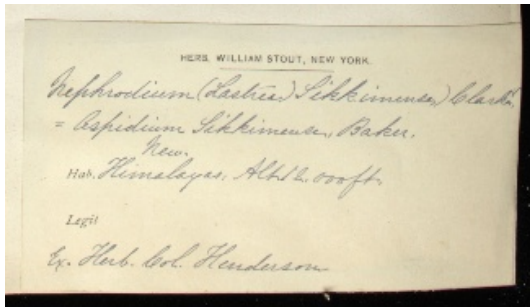 HERB. WILLIAM STOUT, NEW YORK.
Nephrodium (Lastrea) Sikkimense, Clarke.
= Aspidium Sikkimense, Baker.
New.
Hab. Himalayas. Alt. 12.000 ft.
Legit
Ex. Herb. Col. Henderson